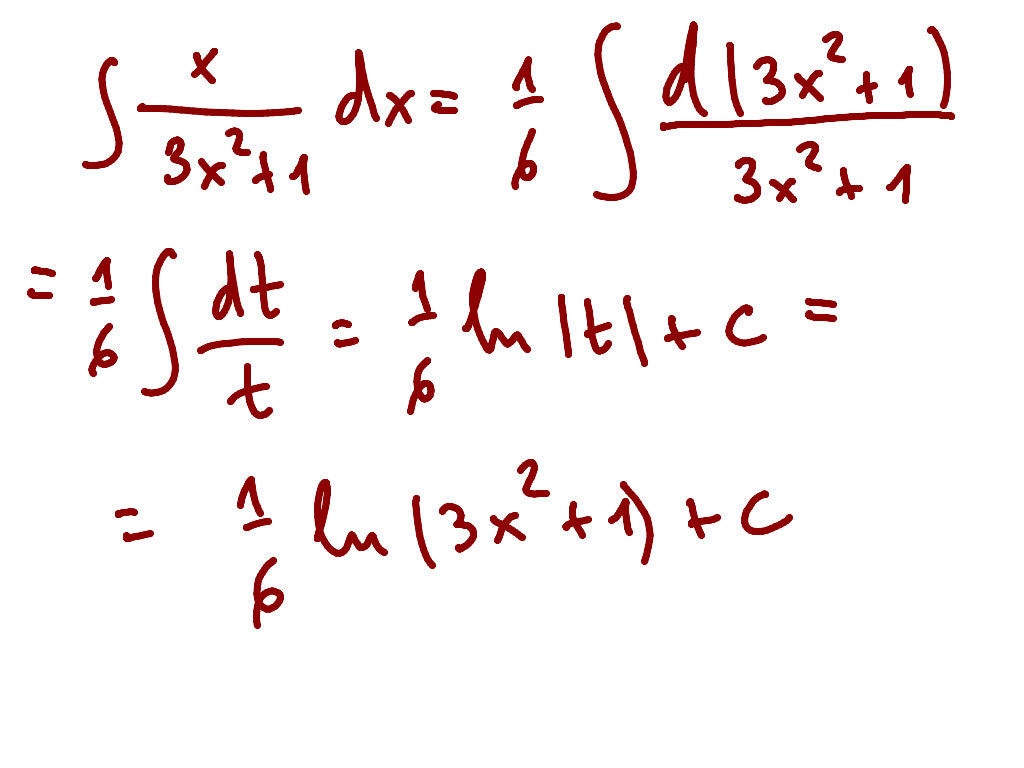 ∫ x/(3x²+1) dx = 1/6 ∫ d(3x²+1)/(3x²+1)
= 1/6 ∫ dt/t = 1/6 ln |t| + c =
= 1/6 ln (3x²+1) + c